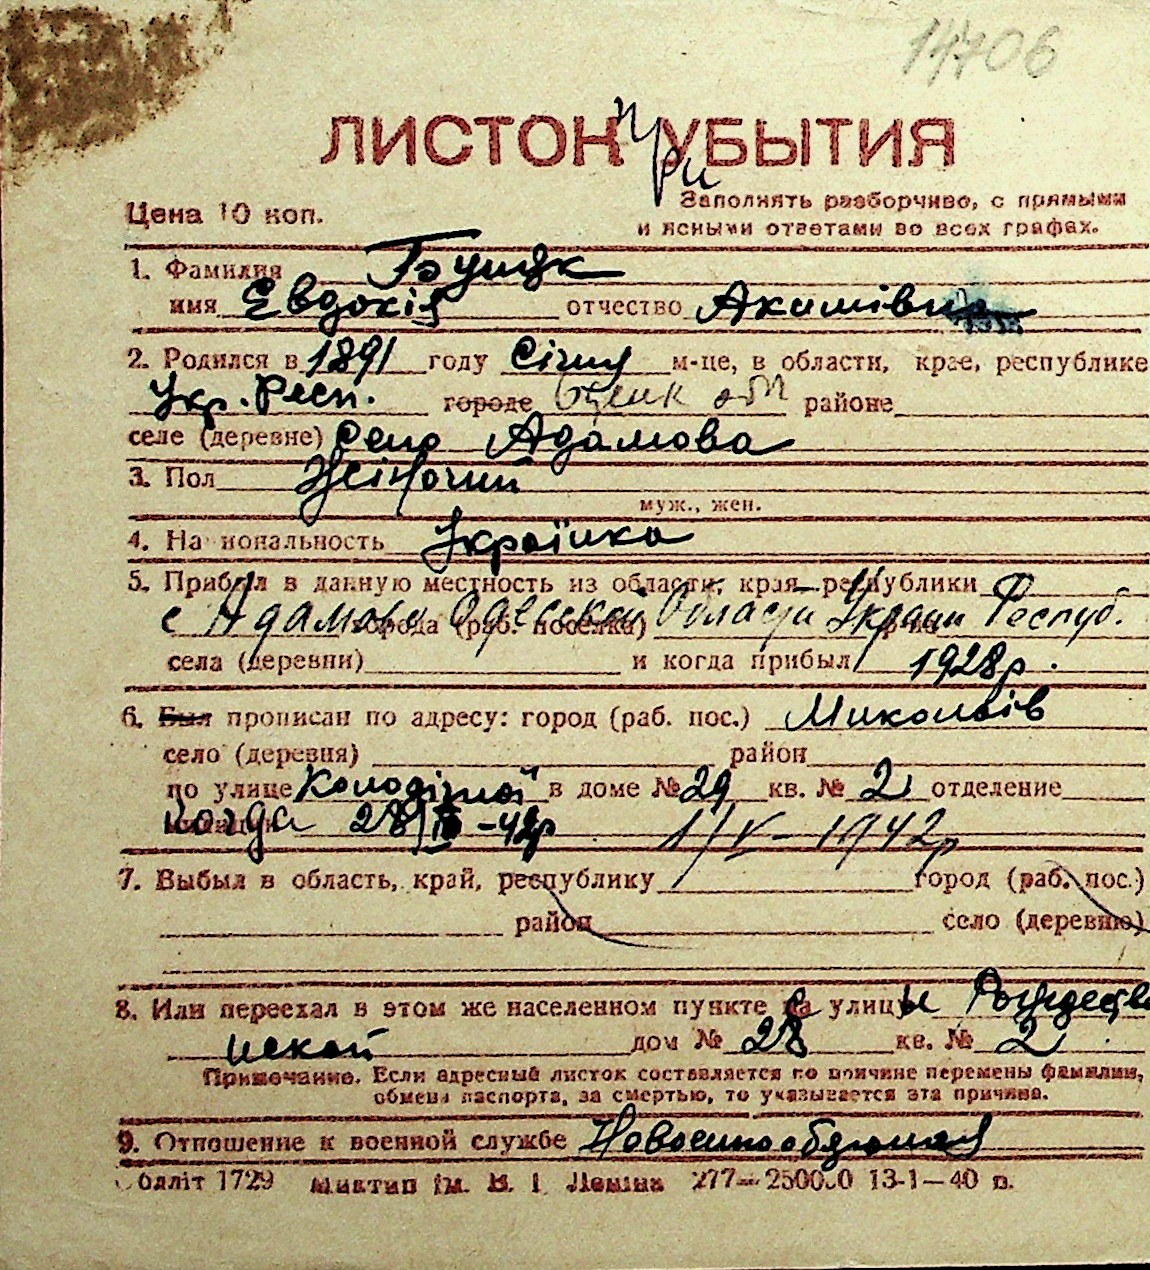 14706
ЛИСТОК при УБЫТИЯ
Цена 10 коп.
Заполнять разборчиво, с прямыми
и ясными ответами во всех графах.
1. Фамилия Буцяк
имя Евдокія отчество Акимівна
2. Родился в 1891 году Січня м-це, в области, крае, республике
Укр. Респ. городе районе
селе (деревне) село Адамова
3. Пол Жіночий
муж., жен.
4. Национальность Українка
5. Прибыл в данную местность из области, края, республики
с Адамово Одесской Области Україн Республ.
города (раб. поселка)
села (деревни) и когда прибыл 1928р.
6. Был прописан по адресу: город (раб. пос.) Миколаїв
село (деревня) район
по улице Колодізной в доме № 29 кв. № 2 отделение
Когда 28/ІV-42р 1/V-1942р
7. Выбыл в область, край, республику город (раб. пос.)
район село (деревню)
8. Или переехал в этом же населенном пункте с улицы Рождестве
нской дом № 28 кв. № 2
Примечание. Если адресный листок составляется по причине перемены фамилии,
обмена паспорта, за смертью, то указывается эта причина.
9. Отношение к военной службе Новоеннообязная
Облліт 1729 Миктип ім. В. І. Леніна 277—250000 13-1—40 р.